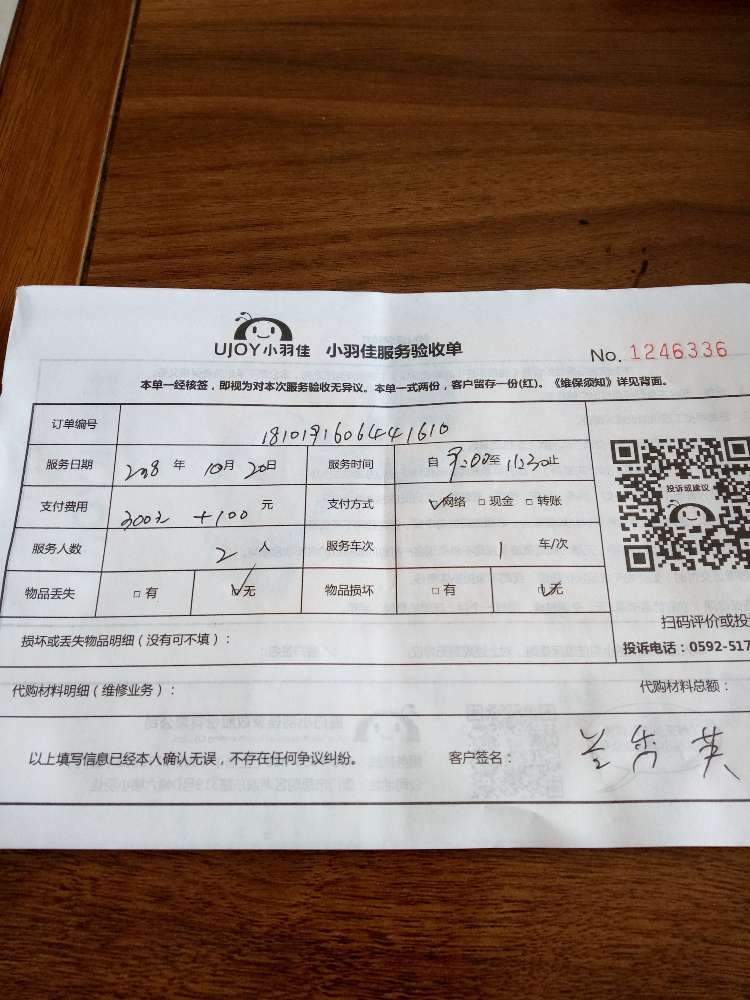 UJOY小羽佳 小羽佳服务验收单 No. 1246336
本单一经核签，即视为对本次服务验收无异议。本单一式两份，客户留存一份(红)。《维保须知》详见背面。
订单编号 1810191606441610
服务日期 2018 年 10月 20日 服务时间 自 9:00至 11:30止
支付费用 300元 +100 元 支付方式 网络 现金 转账
服务人数 2 人 服务车次 1 车/次
物品丢失 有 无 物品损坏 有 无
投诉或建议
扫码评价或投
损坏或丢失物品明细（没有可不填）： 投诉电话：0592-517
代购材料明细（维修业务）： 代购材料总额：
以上填写信息已经本人确认无误，不存在任何争议纠纷。 客户签名： 兰秀英